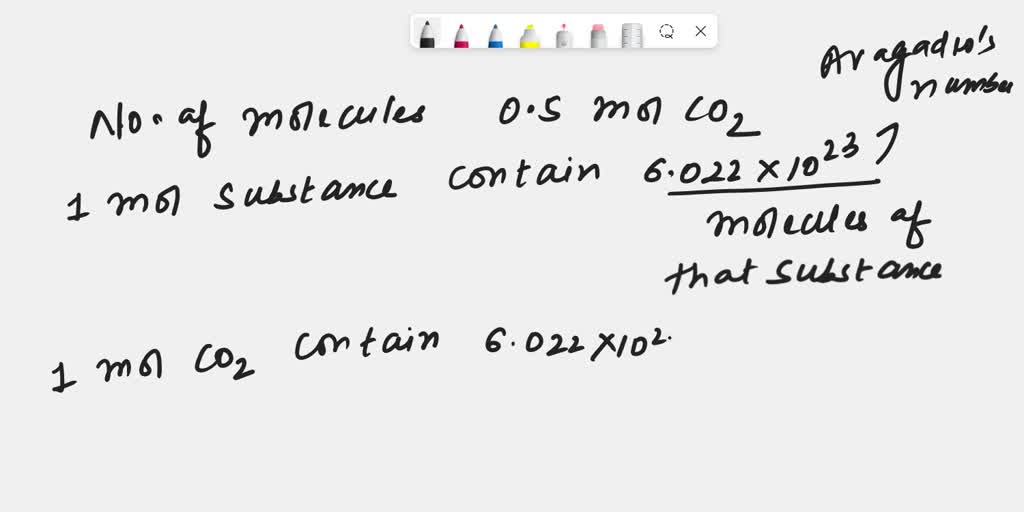 Avagadro's
number
No. of molecules 0.5 mol CO2
1 mol substance contain 6.022 × 10^23
molecules of
that substance
1 mol CO2 contain 6.022 × 10^2.